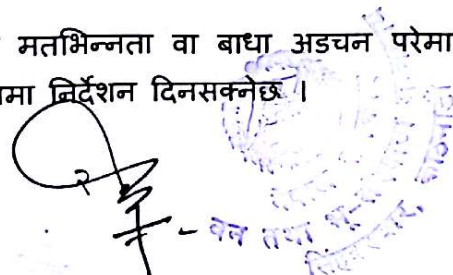 मतभिन्नता वा बाधा अडचन परेमा
मा निर्देशन दिनसक्नेछ ।
वन तथा भू-